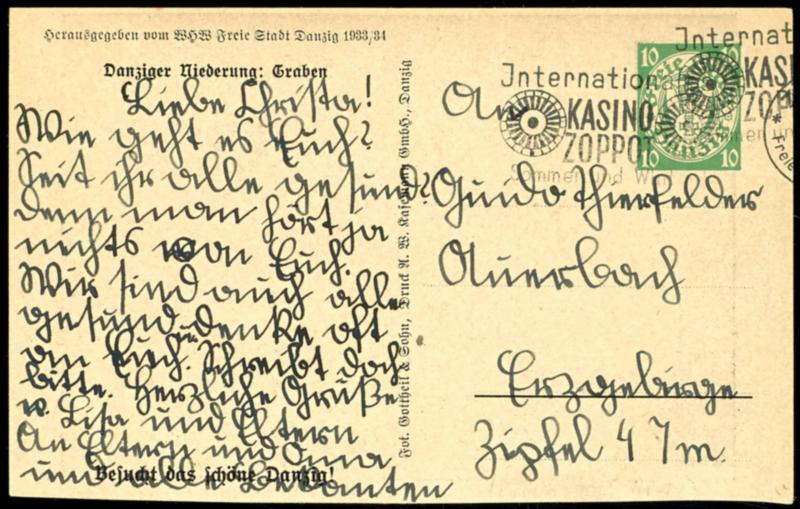 Herausgegeben vom WHW Freie Stadt Danzig 1933/34
Danziger Niederung: Graben
Liebe Christa!
Wie geht es Euch?
Seit ihr alle gesund?
denn man hört ja
nichts von Euch.
Wir sind auch alle
gesund u. denke oft
an Euch. Schreibt doch
bitte. Herzliche Grüße
v. Lisa und Eltern
An Eltern und Oma
und alle Bekanten
Besucht das schöne Danzig!
Fot. Gottheil & Sohn, Druck A. W. Kafemann GmbH., Danzig
Internationa
KASINO
ZOPPOT
Sommer und W
Internat
KAS
ZOP
10
10
10
10
Freie
An
Guido Thierfelder
Auerbach
Erzgebirge
Zipfel 47m.